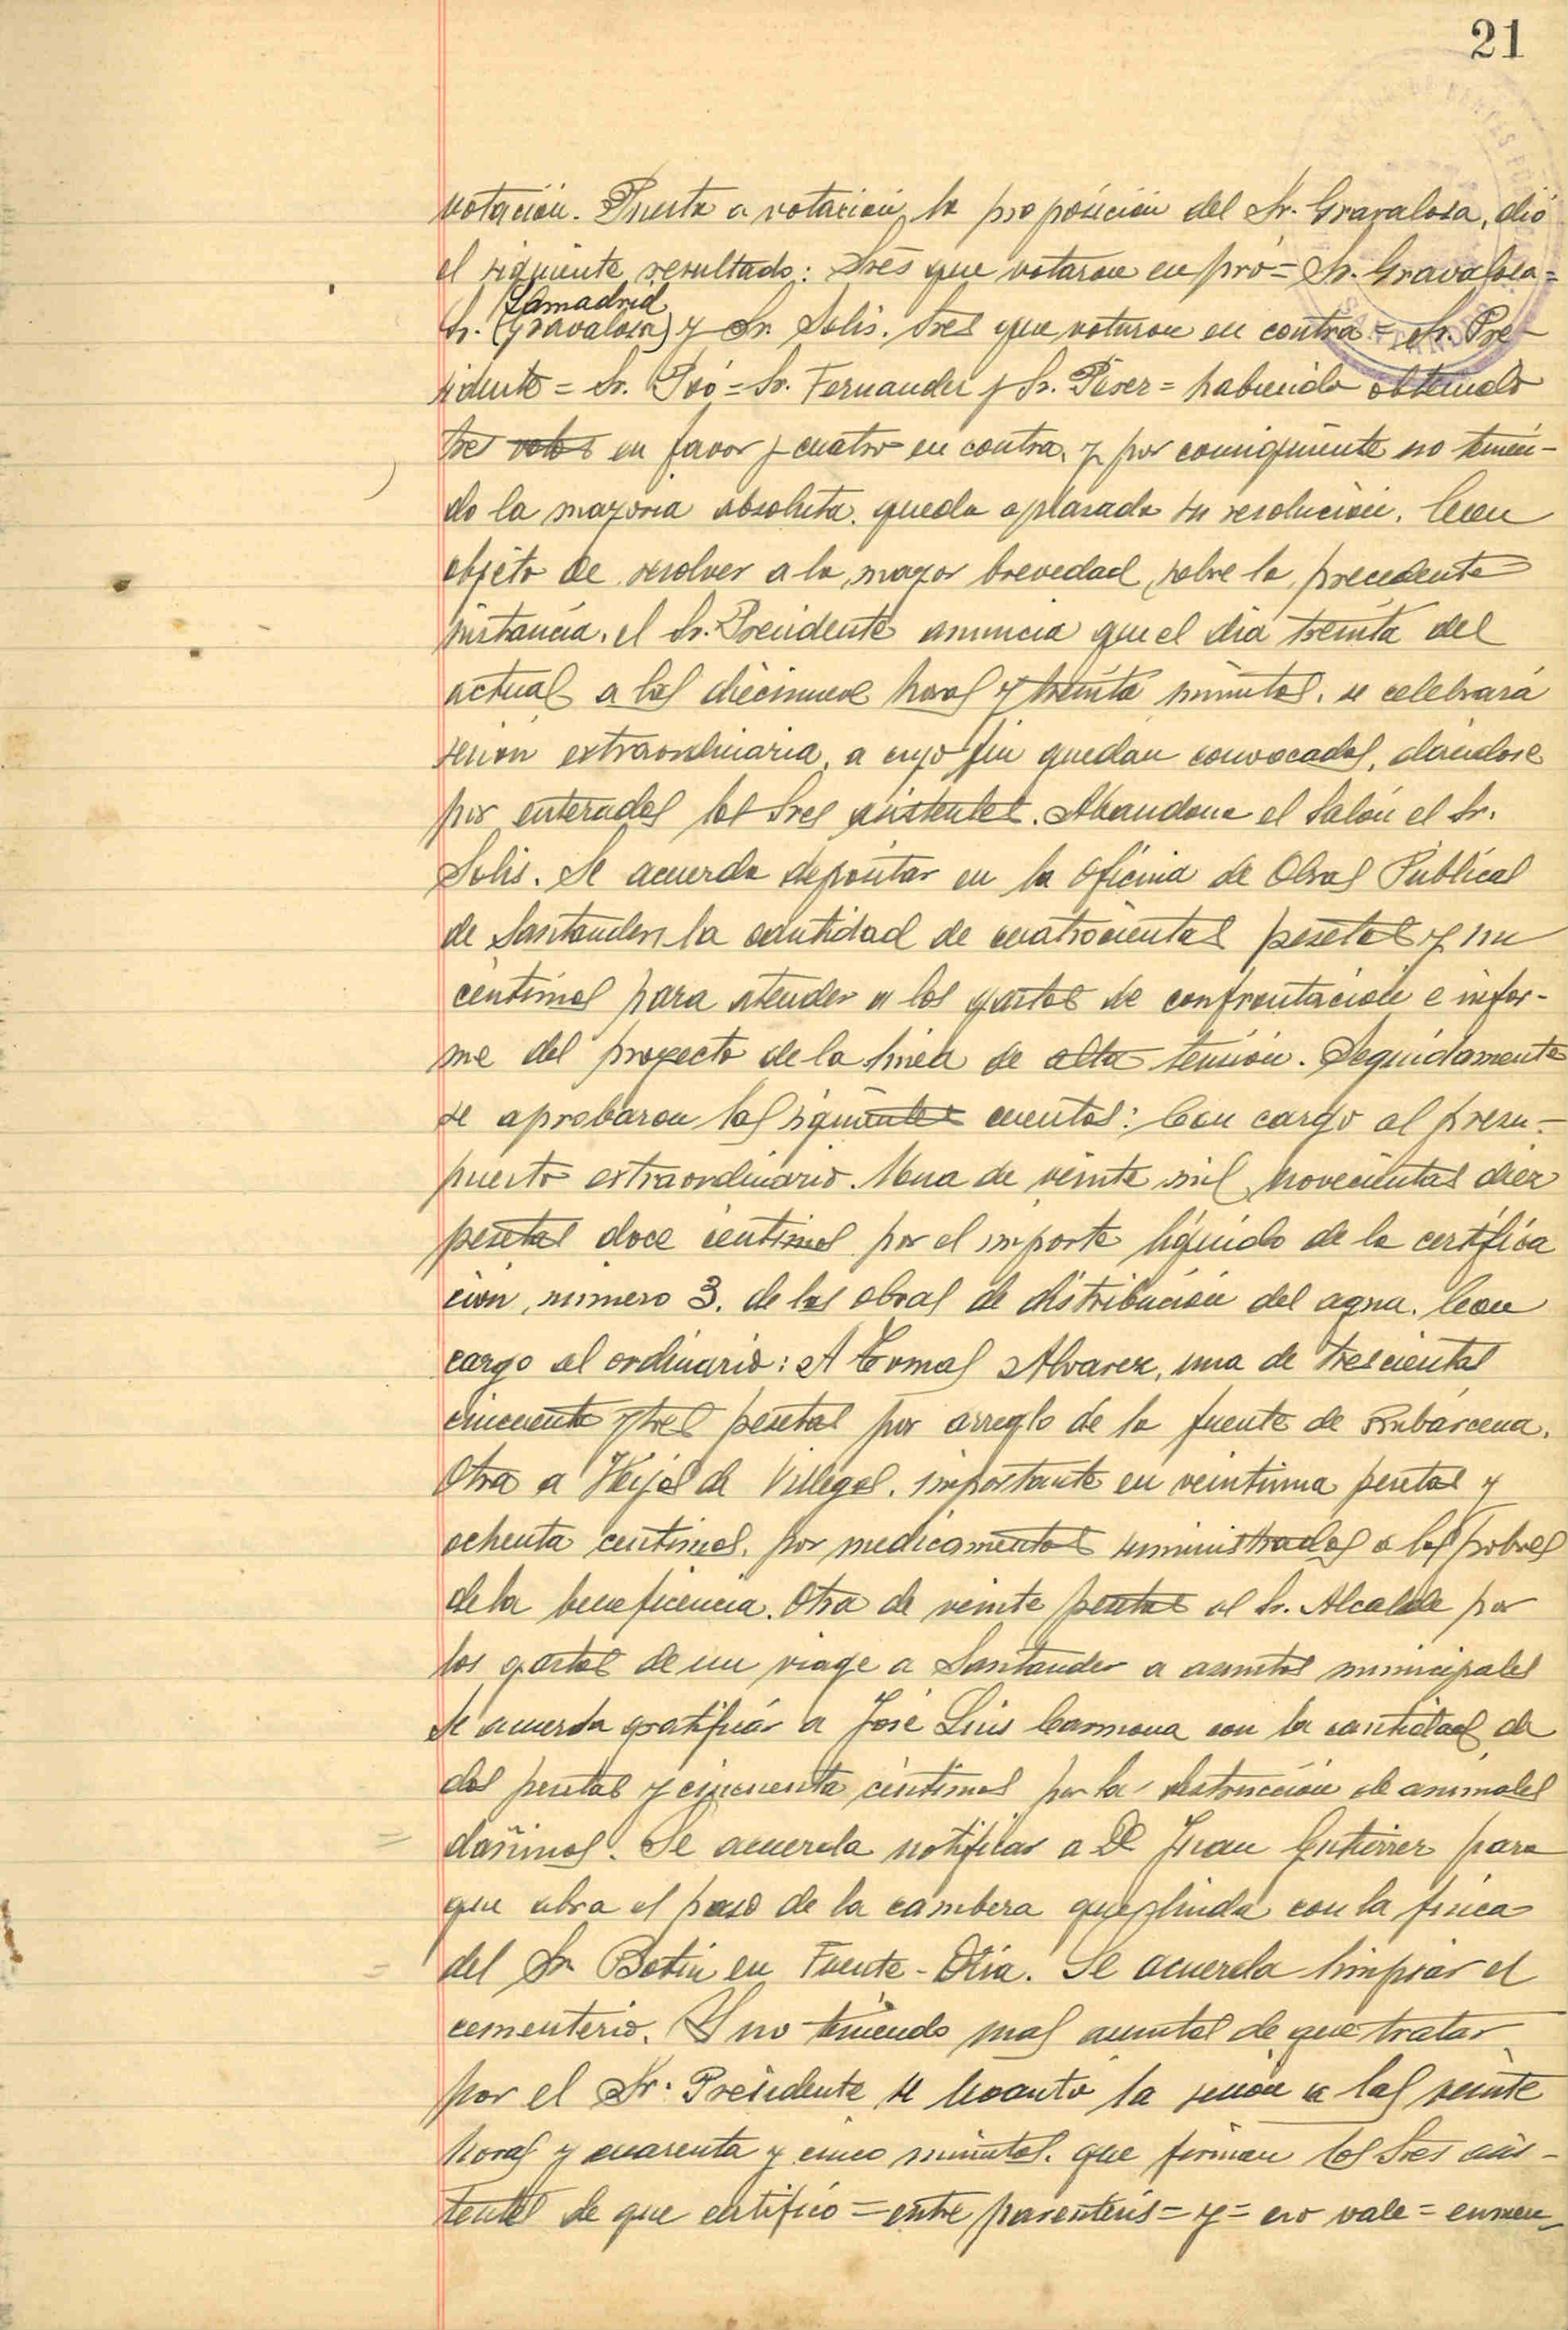 21
votación. Puesta a votación la proposición del Sr. Gravalosa, dió
el siguiente resultado: Sres que votaron en pró = Sr. Gravalosa =
Lamadrid
Sr. (Gravalosa) y Sr. Solis. Sres que votaron en contra = Sr. Pre-
sidente = Sr. Poó = Sr. Fernandez y Sr. Perez = habiendo obtenido
tres votos en favor y cuatro en contra, y por consiguiente no tenien-
do la mayoria absoluta. queda aplazada su resolución. Con
objeto de resolver a la mayor brevedad, sobre la precedente
instancia, el Sr. Presidente anuncia que el dia treinta del
actual a las diecinueve horas y treinta minutos, se celebrará
sesión extraordinaria, a cuyo fin quedan convocados, dándose
por enterados los Sres asistentes. Abandona el Salón el Sr.
Solis. Se acuerda depositar en la oficina de Obras Públicas
de Santander, la cantidad de cuatrocientas pesetas y un
céntimos para atender a los gastos de confrontación e infor-
me del proyecto de la linea de alta tensión. Seguidamente
se aprobaron las siguientes cuentas: Con cargo al presu-
puesto extraordinario. Una de veinte mil novecientas diez
pesetas doce centimos por el importe líquido de la certifica
ción, número 3. de las obras de distribución del agua. Con
cargo al ordinario: A Tomas Alvarez, una de trescientas
cincuenta y tres pesetas por arreglo de la fuente de Rubárcena.
Otra a Hijos de Villegas, importante en veintiuna pesetas y
ochenta centimos, por medicamentos suministrados a los pobres
de la beneficencia. Otra de veinte pesetas al Sr. Alcalde por
los gastos de un viage a Santander a asuntos municipales
Se acuerda gratificár a José Luis Carmona con la cantidad de
dos pesetas y cincuenta céntimos por la destrucción de animales
dañinos. Se acuerda notificar a D. Juan Gutierrez para
que abra el paso de la cambera que linda con la finca
del Sr. Botin en Fuente-Otia. Se acuerda limpiar el
cementerio. Y no teniendo mas asuntos de que tratar
por el Sr. Presidente se levantó la sesión a las veinte
horas y cuarenta y cinco minutos. que firman los Sres asis-
tentes de que certifico = entre parentesis = y = no vale = enmen-